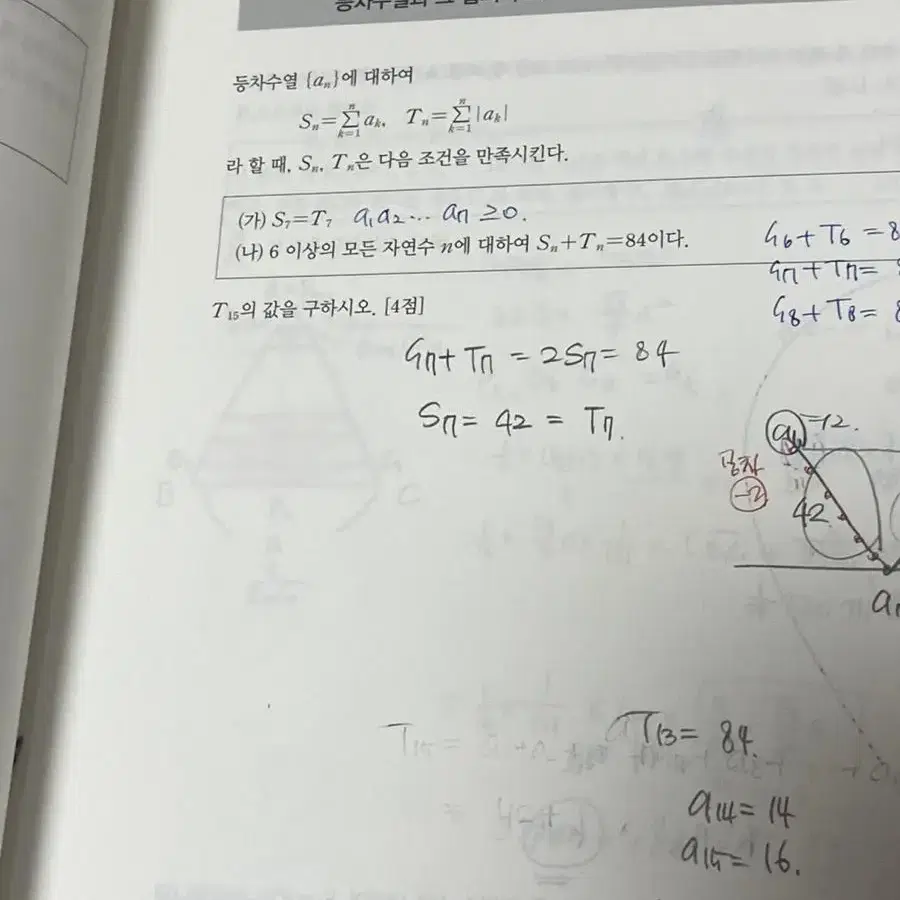 등차수열 {aₙ}에 대하여
Sₙ=∑ₖ₌₁ⁿ aₖ, Tₙ=∑ₖ₌₁ⁿ |aₖ|
라 할 때, Sₙ, Tₙ은 다음 조건을 만족시킨다.
(가) S₇=T₇ a₁a₂… a₇ ≥0.
(나) 6 이상의 모든 자연수 n에 대하여 Sₙ+Tₙ=84이다.
S₆+T₆ =8
S₇+T₇=
S₈+T₈=
T₁₅의 값을 구하시오. [4점]
S₇+T₇ = 2S₇= 84
S₇= 42 = T₇.
a₁ =12.
공차
-2
42
T₁₃= 84.
a₁₄= 14
a₁₅= 16.